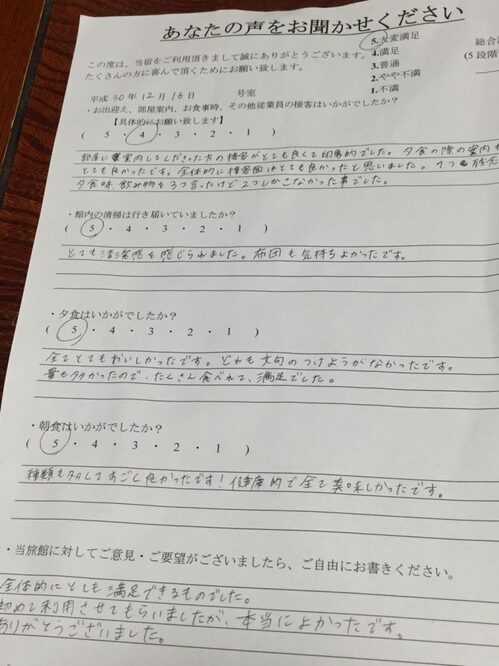 あなたの声をお聞かせください
この度は、当宿をご利用頂きまして誠にありがとうございます。
たくさんの方に喜んで頂くためにお願い致します。
5.大変満足
4.満足
3.普通
2.やや不満
1.不満
総合
(5段階
平成 30年 12月 16日 号室
・お出迎え、部屋案内、お食事時、その他従業員の接客はいかがでしたか?
【具体的にお願い致します】
( 5 ・ 4 ・ 3 ・ 2 ・ 1 )
部屋に案内してくださった方の接客がとても良くて印象的でした。夕食の際の案内も
とても良かったです。全体的に接客面はとても良かったと思いました。1つ
夕食時、飲み物を3つ言ったけど2つしかこなかった事でした。
・館内の清掃は行き届いていましたか?
( 5 ・ 4 ・ 3 ・ 2 ・ 1 )
とても清潔感を感じられました。布団も気持ちよかったです。
・夕食はいかがでしたか?
( 5 ・ 4 ・ 3 ・ 2 ・ 1 )
全てとてもおいしかったです。どれも文句のつけようがなかったです。
量も多かったので、たくさん食べれて、満足でした。
・朝食はいかがでしたか?
( 5 ・ 4 ・ 3 ・ 2 ・ 1 )
種類も多くてすごく良かったです!健康的で全て美味しかったです。
・当旅館に対してご意見・ご要望がございましたら、ご自由にお書きください。
全体的にとても満足できるものでした。
初めて利用させてもらいましたが、本当によかったです。
ありがとうございました。